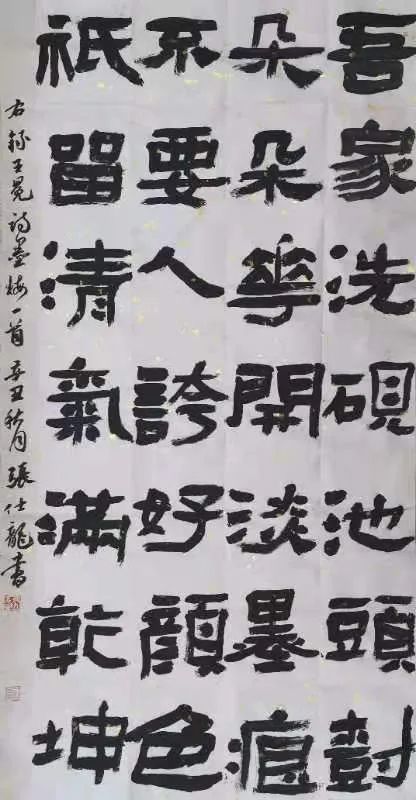 吾家洗硯池頭樹
朵朵華開淡墨痕
不要人誇好顏色
祇留清氣滿乾坤
右錄王冕詩墨梅一首辛丑秋月張仕龍書